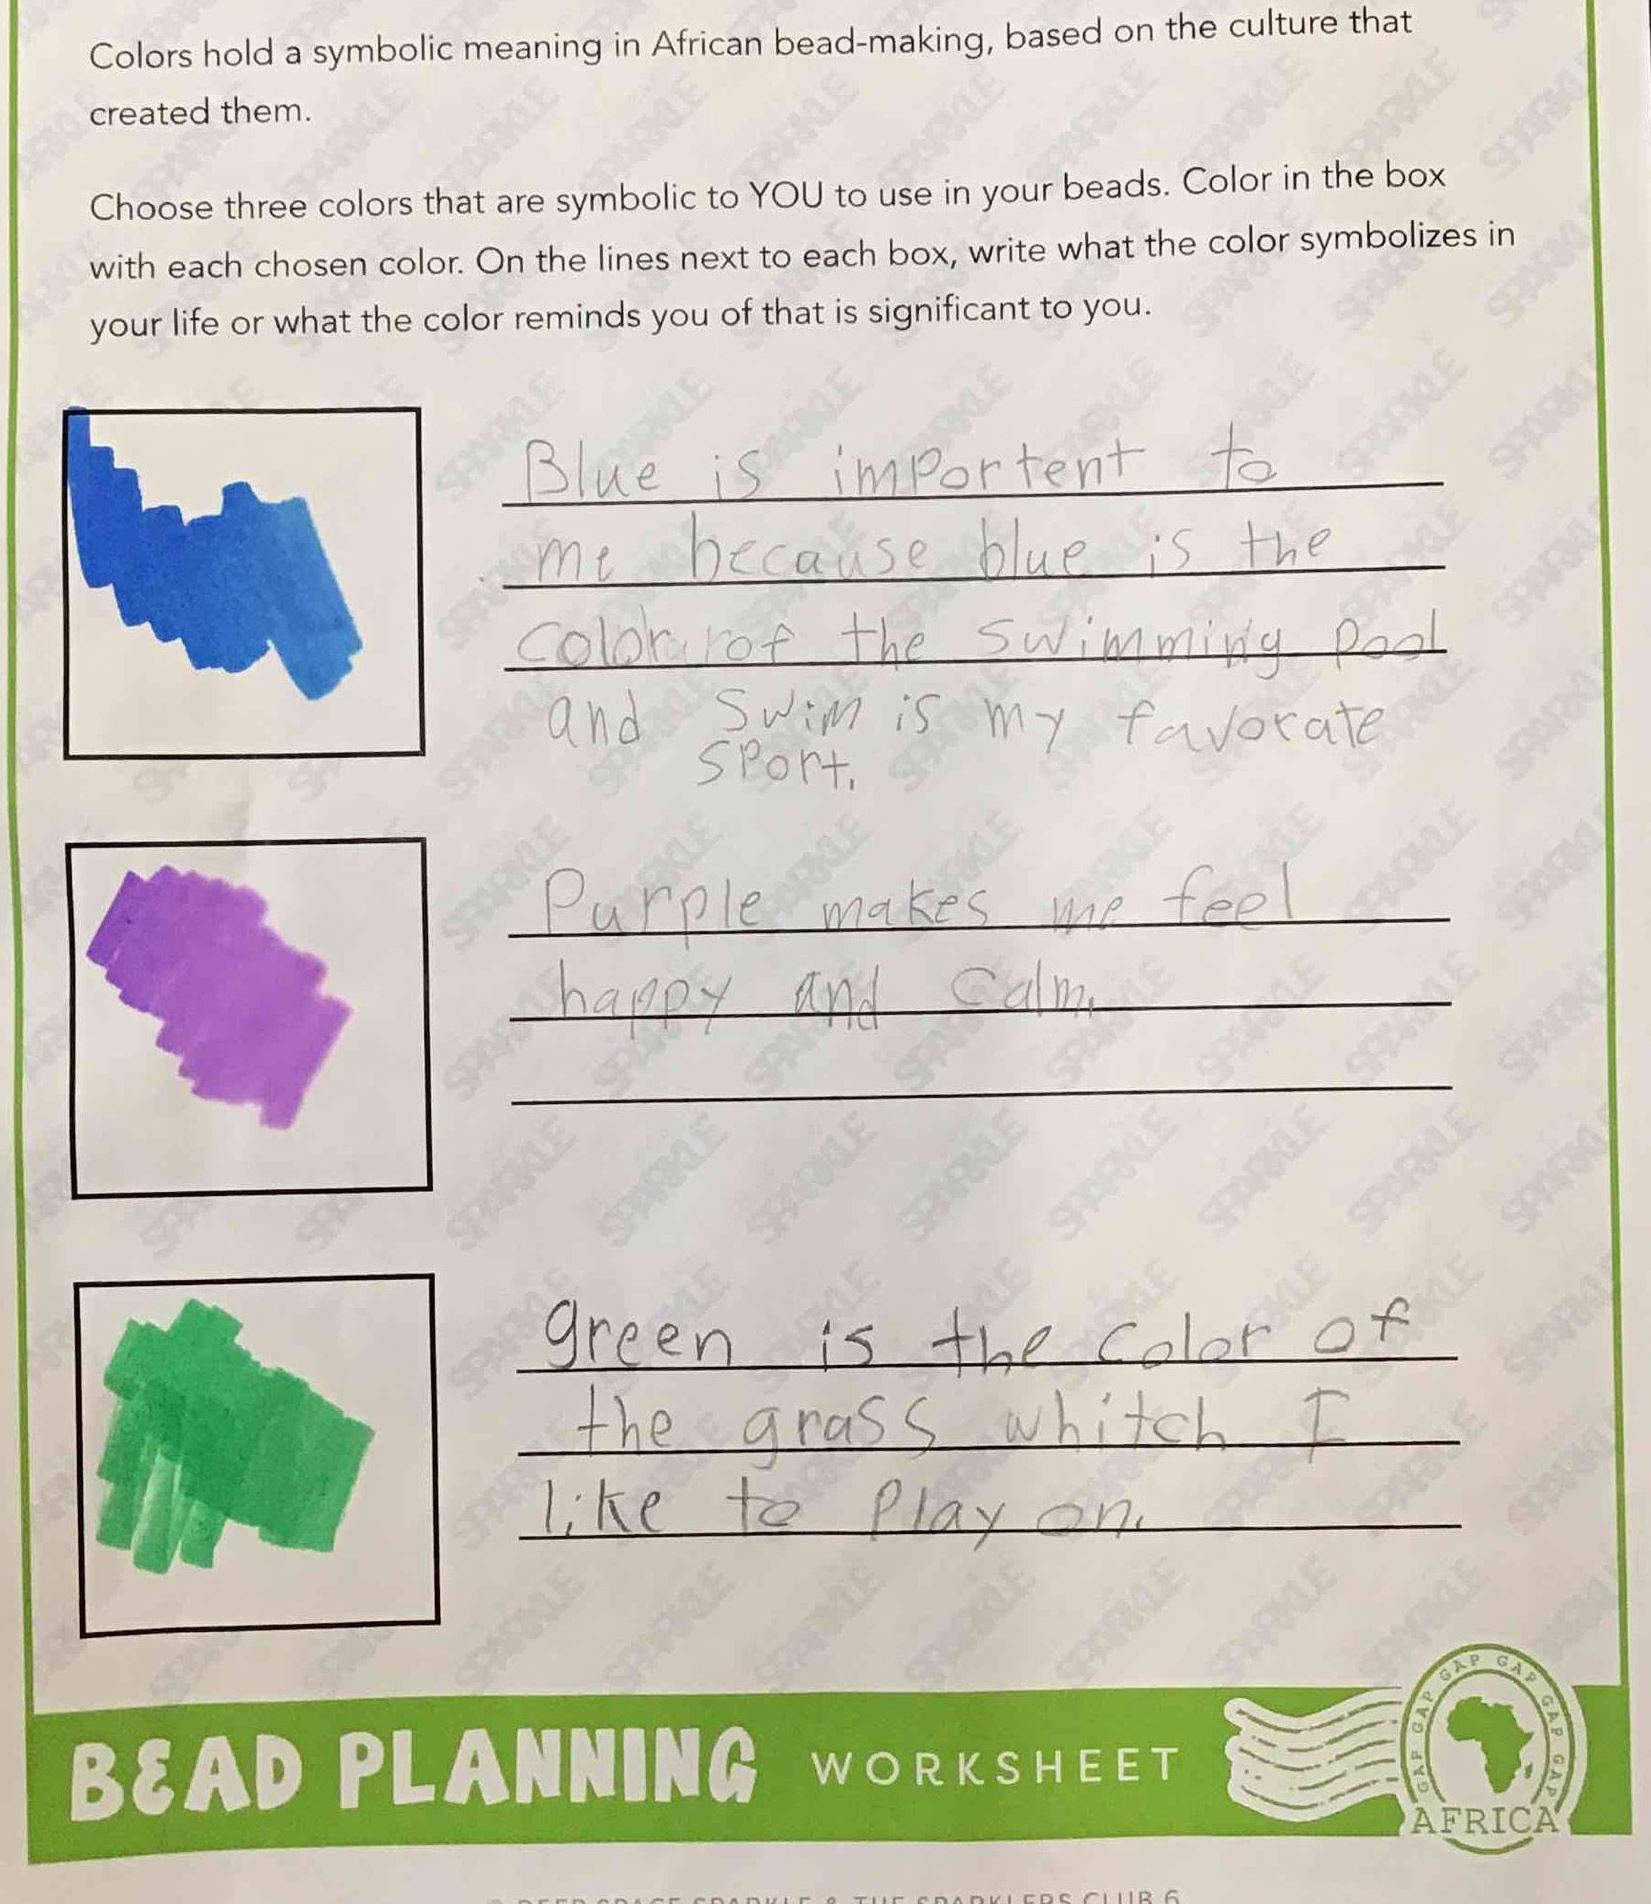 Colors hold a symbolic meaning in African bead-making, based on the culture that
created them.
Choose three colors that are symbolic to YOU to use in your beads. Color in the box
with each chosen color. On the lines next to each box, write what the color symbolizes in
your life or what the color reminds you of that is significant to you.
Blue is importent to
me because blue is the
color of the swimming pool
and swim is my favorate
sport.
Purple makes me feel
happy and calm.
green is the color of
the grass whitch I
like to play on.
BEAD PLANNING WORKSHEET
GAP GAP GAP GAP GAP GAP
AFRICA
DEEP SPACE SPARKLE & THE SPARKLERS CLUB 6